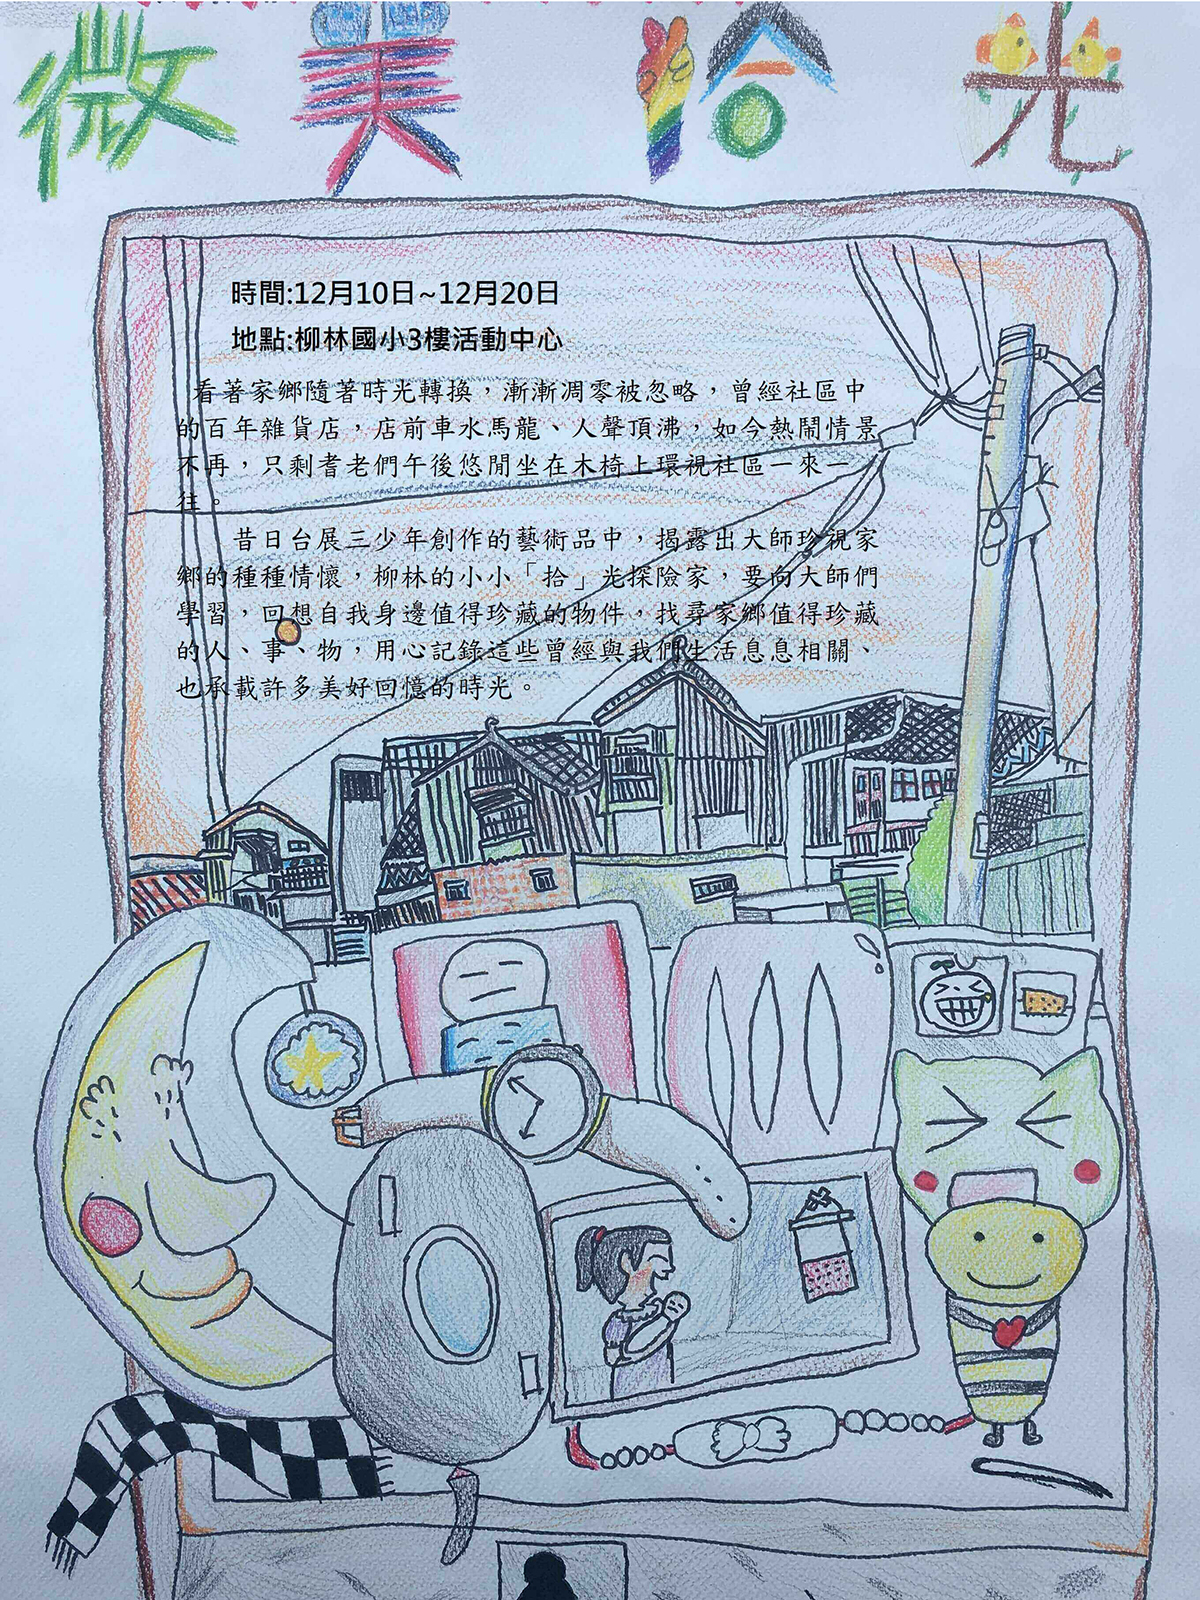 微美拾光
時間:12月10日~12月20日
地點:柳林國小3樓活動中心
看著家鄉隨著時光轉換，漸漸凋零被忽略，曾經社區中
的百年雜貨店，店前車水馬龍、人聲頂沸，如今熱鬧情景
不再，只剩耆老們午後悠閒坐在木椅上環視社區一來一
往。
昔日台展三少年創作的藝術品中，揭露出大師珍視家
鄉的種種情懷，柳林的小小「拾」光探險家，要向大師們
學習，回想自我身邊值得珍藏的物件，找尋家鄉值得珍藏
的人、事、物，用心記錄這些曾經與我們生活息息相關、
也承載許多美好回憶的時光。